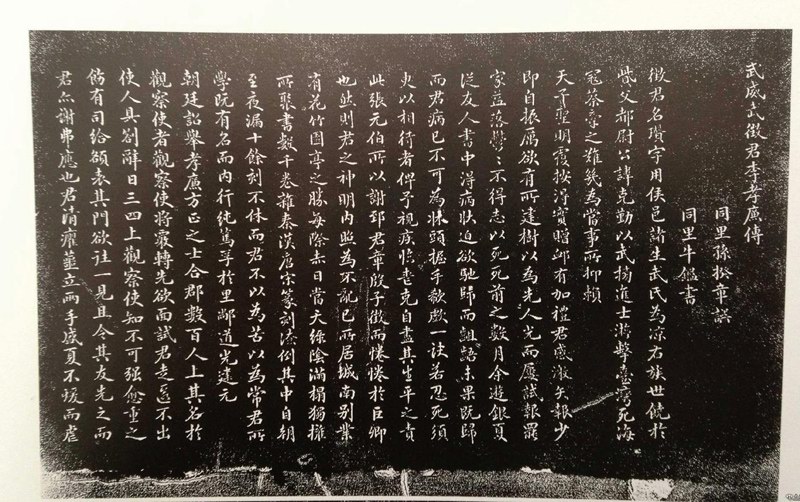 武威武徵君李孝廉傳
同里孫揆章譔
同里牛鑑書
徵君名瓚字用侯邑諸生武氏為涼右族世饒於
貲父都尉公諱克勤以武擒進士游擊臺灣死海
寇蔡牽之難幾為當事所抑賴
天子聖明覆按得實贈卹有加禮君感激矢報少
即自振厲欲有所建樹以為先人光而屢試報罷
家益落鬱鬱不得志以死死前之數月余遊銀夏
從友人書中得病狀迫欲馳歸而齟齬未果既歸
而君病已不可為牀頭握手欷歔一訣若忍死須
臾以相待者俾予視疾臨壹克自盡其生平之責
此張元伯所以謝郅君章殷子徵而惓惓於巨卿
也然則君之神明內照為不詭已所居城南別業
有花竹園亭之勝每除去日當天綠陰滿榻獨擁
所聚書數千卷雜秦漢唐宋篆刻法例其中自朝
至夜漏十餘刻不休而君不以為苦以為常君所
學既有名而內行純篤孚於里鄰道光建元
朝廷詔舉孝廉方正之士合郡數百人上其名於
觀察使者觀察使將覈轉先欲面試君走匿不出
使人具劄辭日三四上觀察使知不可強愈重之
飭有司給額表其門欲往一見且令其友先之而
君亦謝弗應也君清癯藎立兩手盛夏不煖而虐